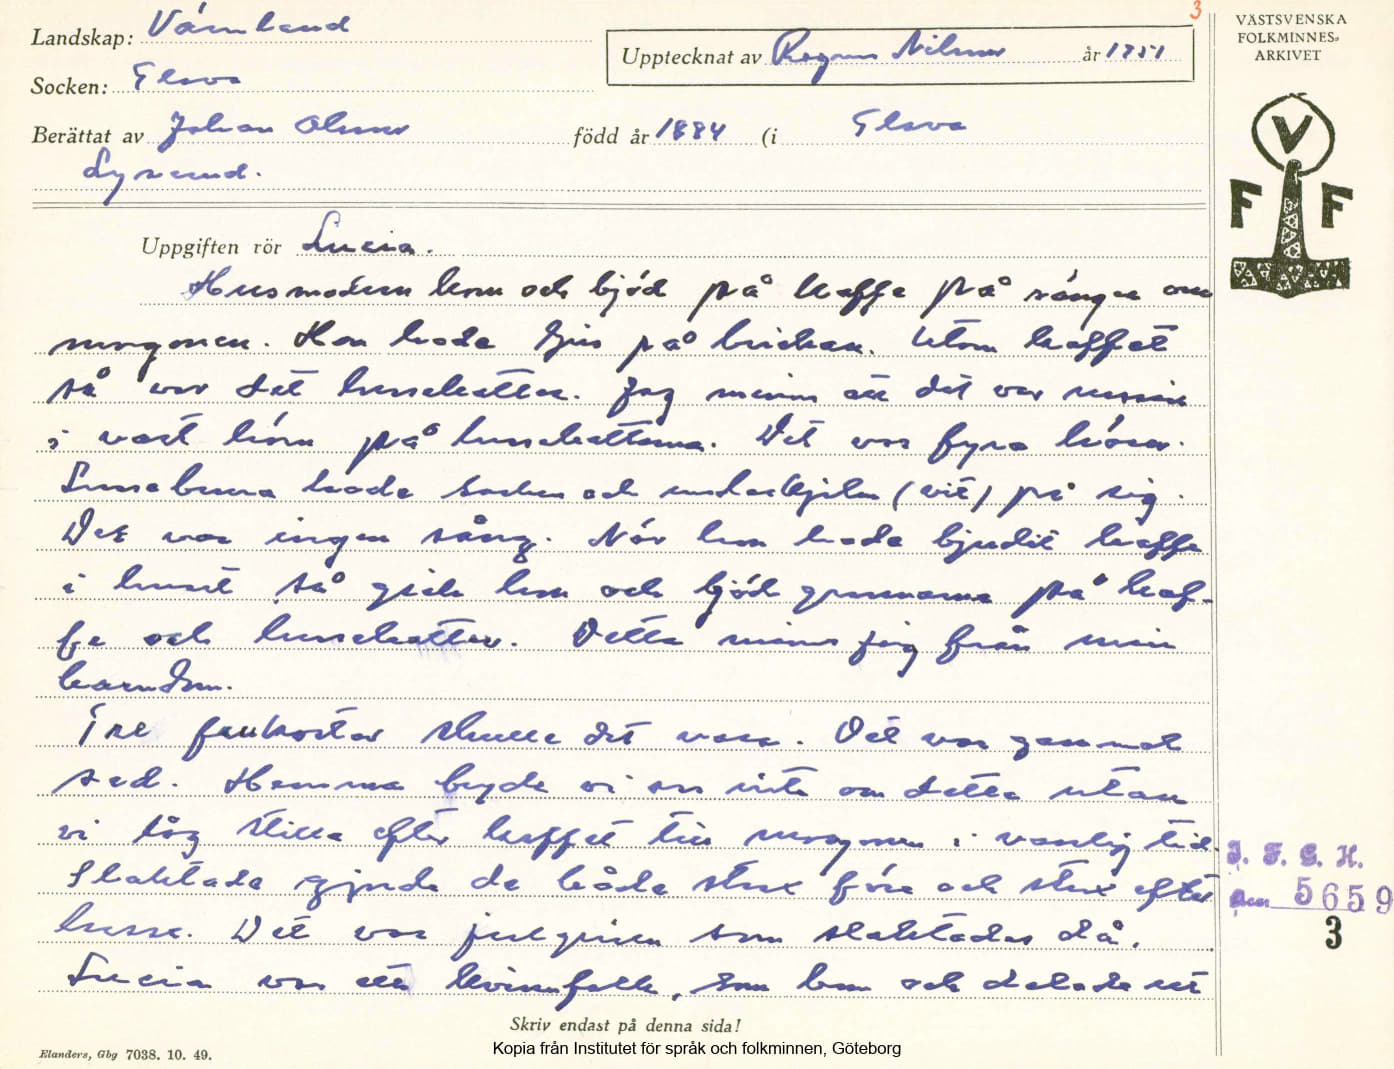 3
Landskap: Värmland
VÄSTSVENSKA
FOLKMINNES-
ARKIVET
Upptecknat av Ragnar Nilsson år 1951
Socken: Elava
Berättat av Johan Olsson född år 1884 (i Elava
Lysvund.
V
F F
Uppgiften rör Lucia.
Husmodern kom och bjöd på kaffe på sängen om
morgonen. Hon hade ljus på brickan. Utom kaffet
så var det lussekatter. Jag minns att det var russin
i vart hörn på lussekatterna. Det var fyra hörn.
Lussebruna hade socken och underkjolen (vit) på sig.
Det var ingen sång. När hon hade bjudit kaffe
i huset så gick hon och bjöd grannarna på kaf-
fe och lussekatter. Detta minns jag från min
barndom.
Tre frukostar skulle det vara. Det var gammal
sed. Hemma brydde vi oss inte om detta utan
vi låg stilla efter kaffet till morgonen i vanlig tid.
Slaktade gjorde de både strax före och strax efter
lusse. Det var julgrisen som slaktades då.
Lucia var ett kvinnfolk, som kom och delade ut
I. F. G. H.
acc 5659
3
Skriv endast på denna sida!
Elanders, Gbg 7038. 10. 49.
Kopia från Institutet för språk och folkminnen, Göteborg